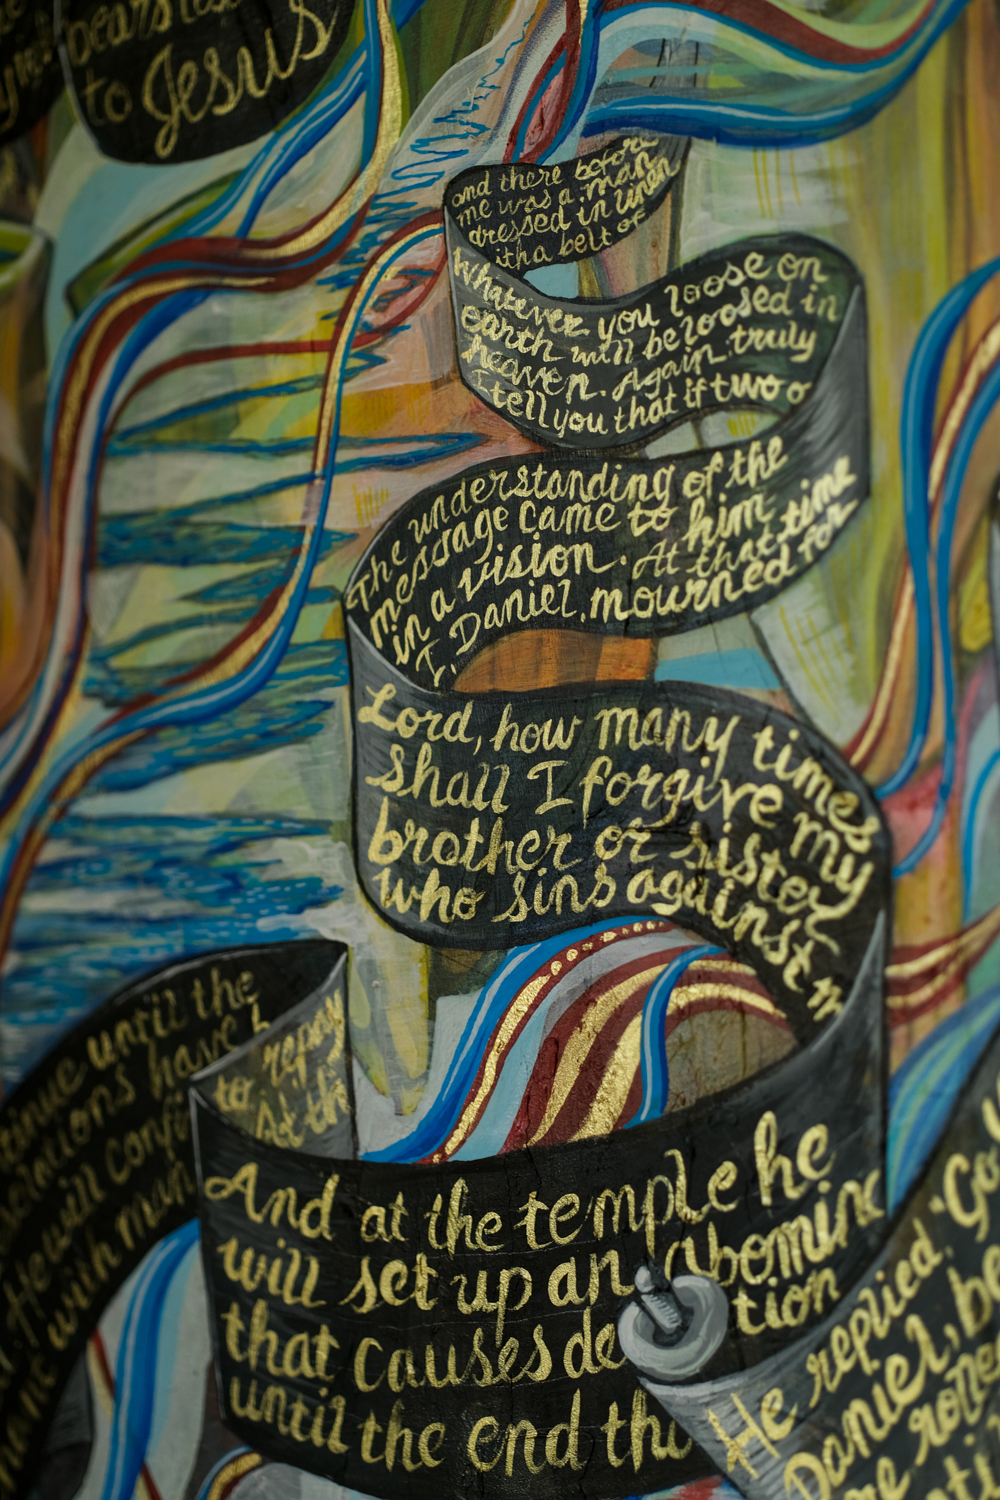 bears
to Jesus
and there before
me was a man
dressed in linen
ith a belt of
Whatever you loose on
earth will be loosed in
heaven. Again, truly
I tell you that if two o
The understanding of the
message came to him
in a vision. At that time
I, Daniel, mourned for
Lord, how many times
shall I forgive my
brother or sister
who sins against m
until the
have
He will confi
with man
repay
to
And at the temple he
will set up an abomina
that causes de tion
until the end tha
He replied, "Go
Daniel, be